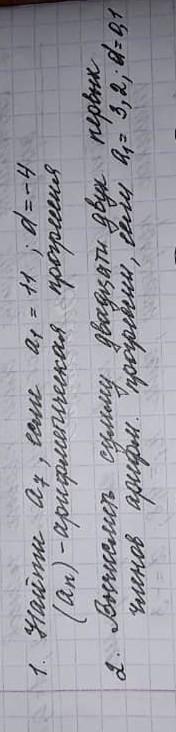 1. Найти a₇, если a₁ = 11; d = -4
(aₙ) - арифметическая прогрессия
2. Вычислить сумму двадцати двух первых
членов арифм. прогрессии, если a₁ = 3,2; d = 0,1